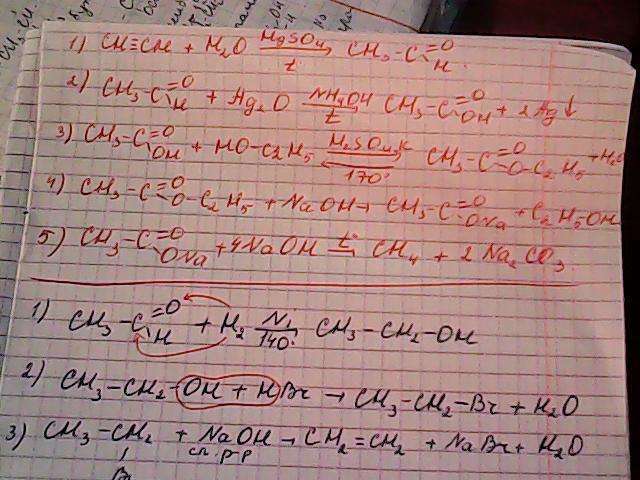 1) CH≡CH + H2O HgSO4 t CH3-C=O H
2) CH3-C=O H + Ag2O NH4OH t CH3-C=O OH + 2Ag↓
3) CH3-C=O OH + HO-C2H5 H2SO4,к 170° CH3-C=O O-C2H5 + H2O
4) CH3-C=O O-C2H5 + NaOH → CH3-C=O ONa + C2H5OH
5) CH3-C=O ONa + 4NaOH t° CH4 + 2Na2CO3
1) CH3-C=O H + H2 Ni 140° CH3-CH2-OH
2) CH3-CH2-OH + HBr → CH3-CH2-Br + H2O
3) CH3-CH2 + NaOH → CH2=CH2 + NaBr + H2O
сп. р-р
Br